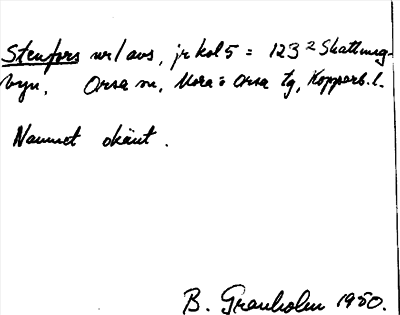 Stenfors nr/avs, jr kol 5 = 123² Skattung-
byn. Orsa sn, Mora o Orsa tg, Kopparb. l.
Namnet okänt.
B. Granholm 1950.